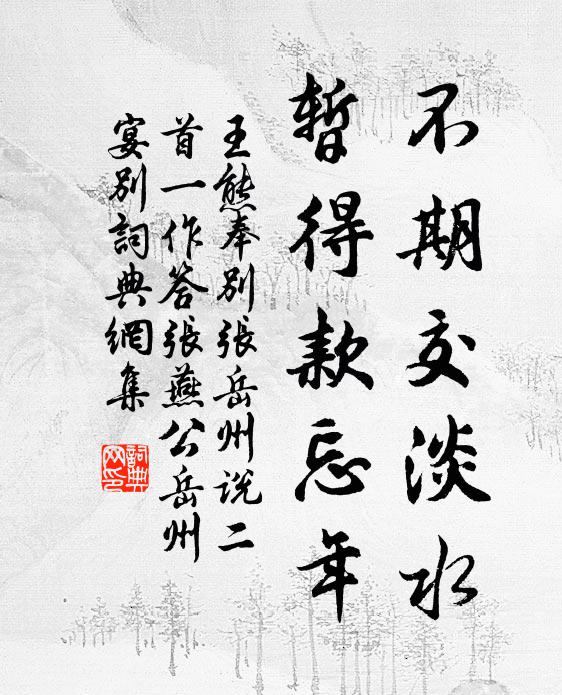 不期交淡水
暫得款忘年
王熊奉別張岳州说二
首一作答張燕公岳州
宴別詞典網集
詞典
网印